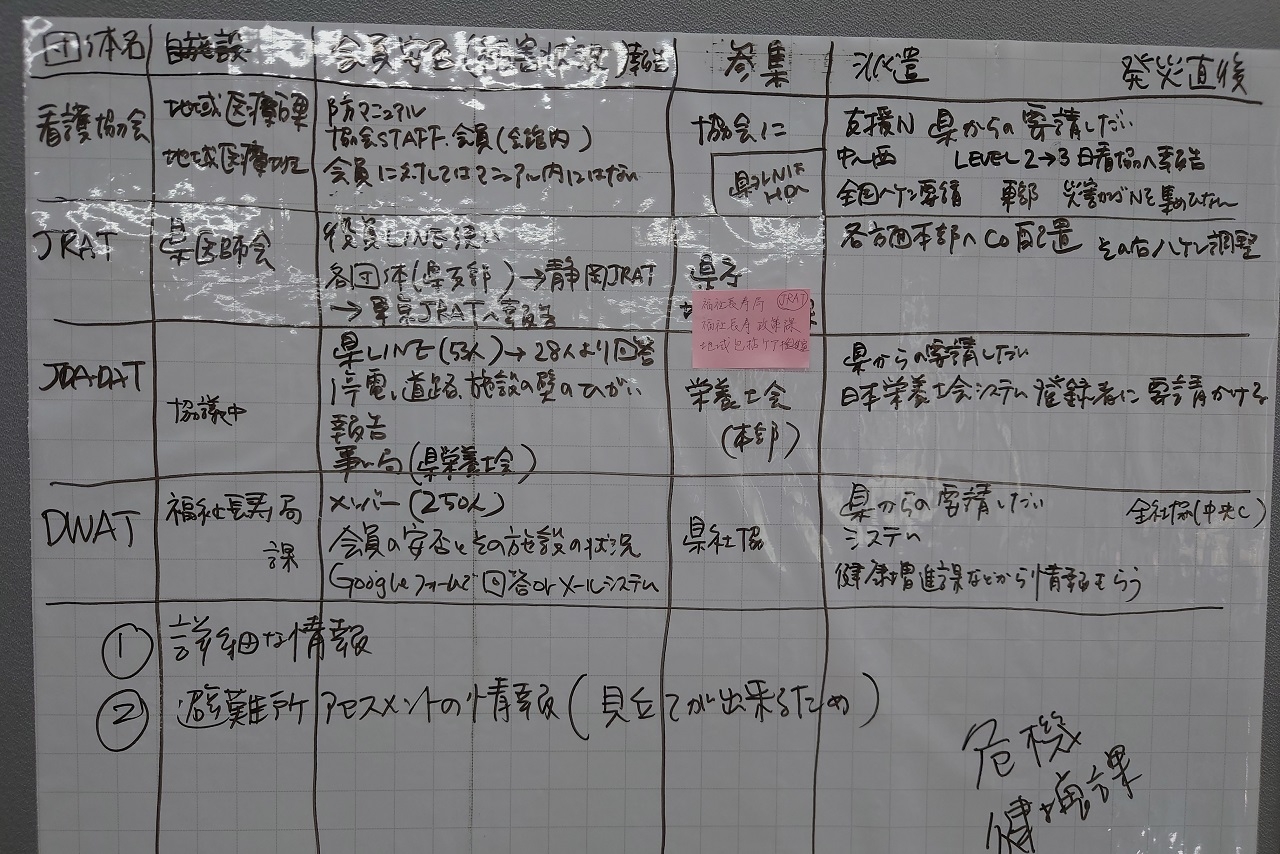 団体名 自施設 会員安否(被害状況)報告 参集 派遣 発災直後
看護協会
地域医療課
地域医療班
防マニュアル
協会STAFF・会員(会館内)
会員に対してはマニュアル内にはない
協会に
県
支援N 県からの要請しだい
中〜西 LEVEL2→3 日看協へ報告
全国ハケン要請 東部 災害かごNを集めひなん
JRAT
県医師会
役員LINE使い
各団体(県支部)→静岡JRAT
→東京JRATへ報告
県庁
福祉長寿局 JRAT
福祉長寿政策課
地域包括ケア推進室
各方面本部へCo配置 その後ハケン調整
JDA-DAT
協議中
県LINE(53人)→28人より回答
停電、道路、施設の壁のひがい
報告
事ム局(県栄養士会)
栄養士会
(本部)
県からの要請しだい
日本栄養士会システム登録者に要請かける
DWAT
福祉長寿局
課
メンバー(250人)
会員の安否とその施設の状況
Googleフォームで回答orメールシステム
県社協
県からの要請しだい 全社協(中央C)
システム
健康増進課などから情報もらう
① 詳細な情報
② 避難所アセスメントの情報(見立てが出来るため)
危機
課